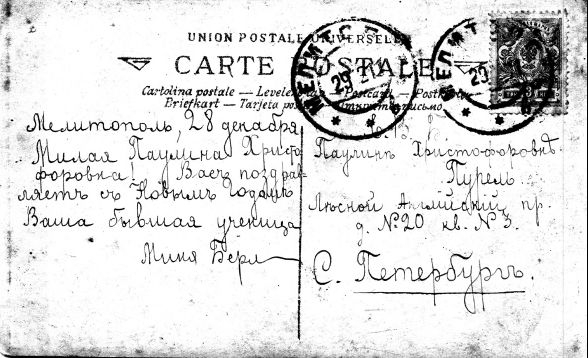 UNION POSTALE UNIVERSELLE
CARTE POSTALE
Cartolina postale — Levelező-Lap — Postcard — Postkarte
Briefkart — Tarjeta postal — Открытое письмо
МЕЛИТОП
29
МЕЛИТ
29
Мелитополь, 28 декабря
Милая Паулина Христо
форовна! Васъ поздрав
ляетъ съ Новымъ Годомъ
Ваша бывшая ученица
Миня Берл
Паулинѣ Христофоровнѣ
Пурель
Лѣсной Английскій пр.
д. № 20 кв. № 3.
С. Петербургъ.